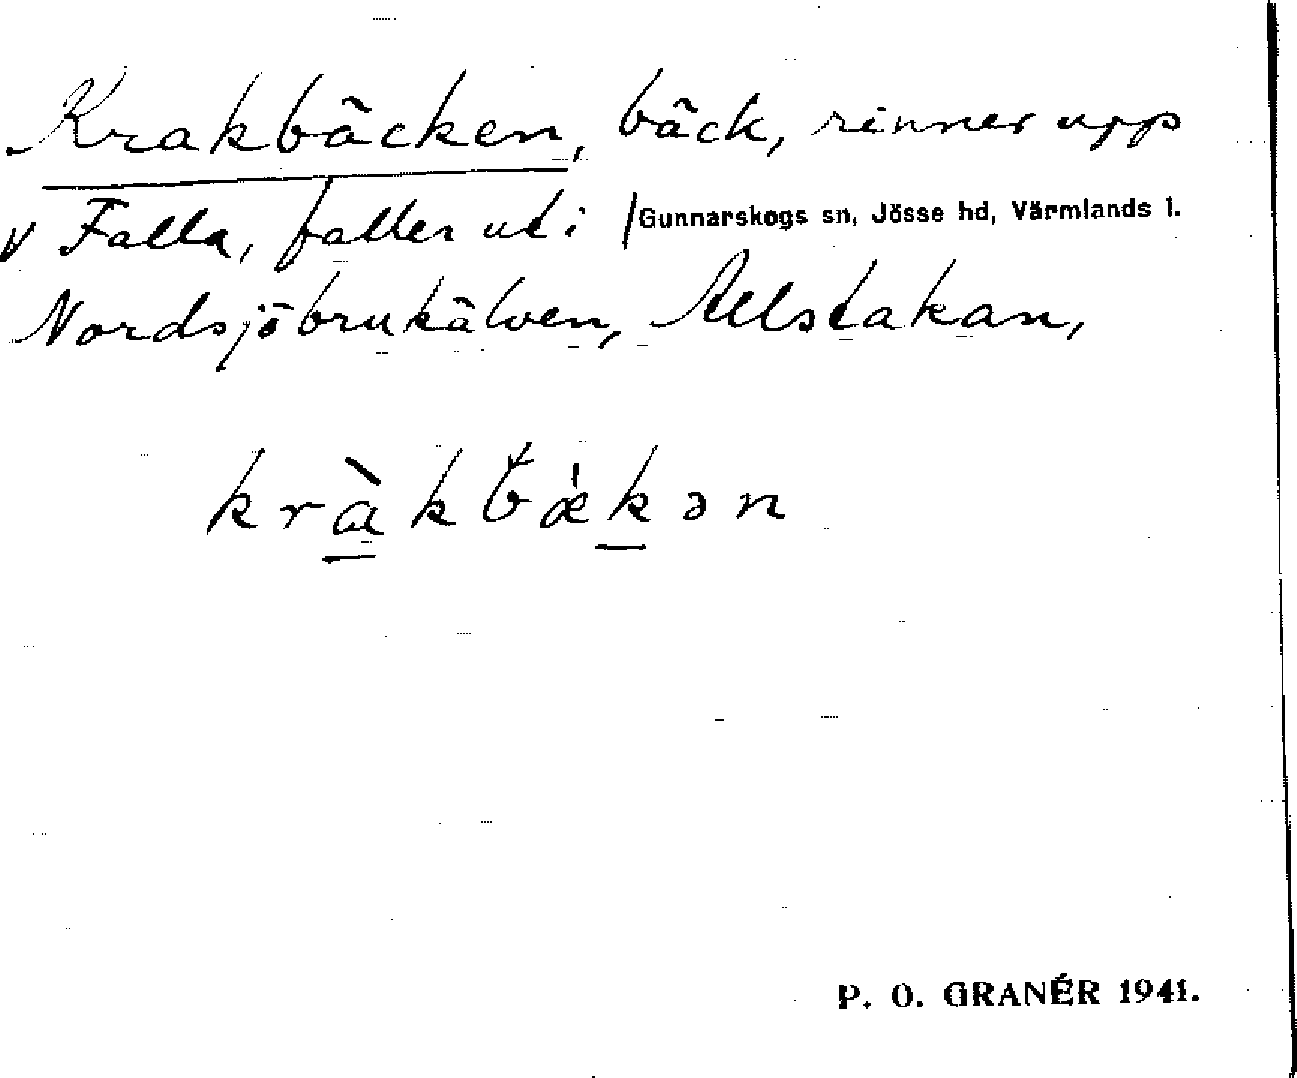 Krakbäcken, bäck, rinner upp
v Falla, faller ut i /Gunnarskogs sn, Jösse hd, Värmlands l.
Nordsjöbrukälven, Allstakan,
kràkbǽkən
P. O. GRANÉR 1941.